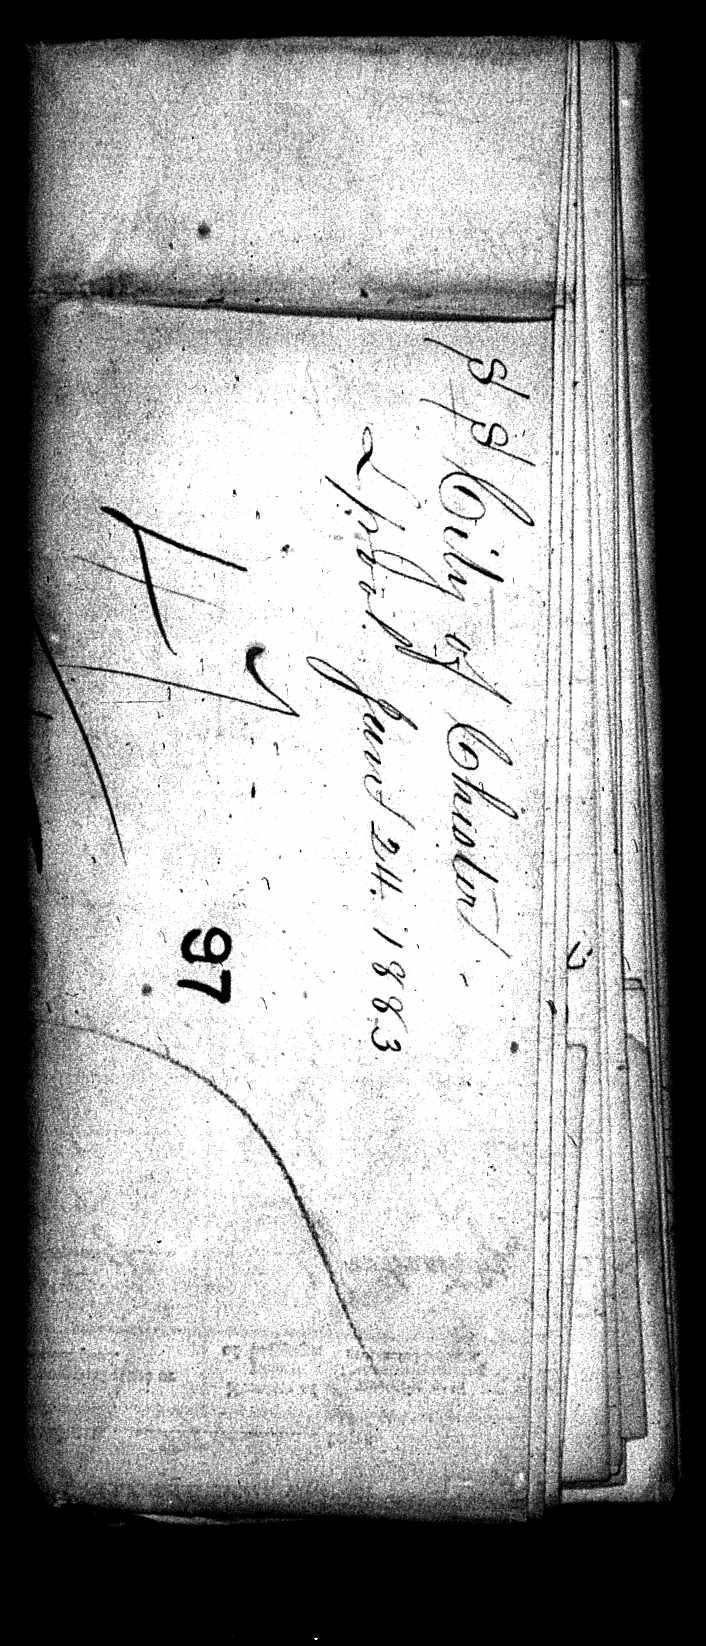 SS City of Chester
L'pool June 24. 1883
47
97